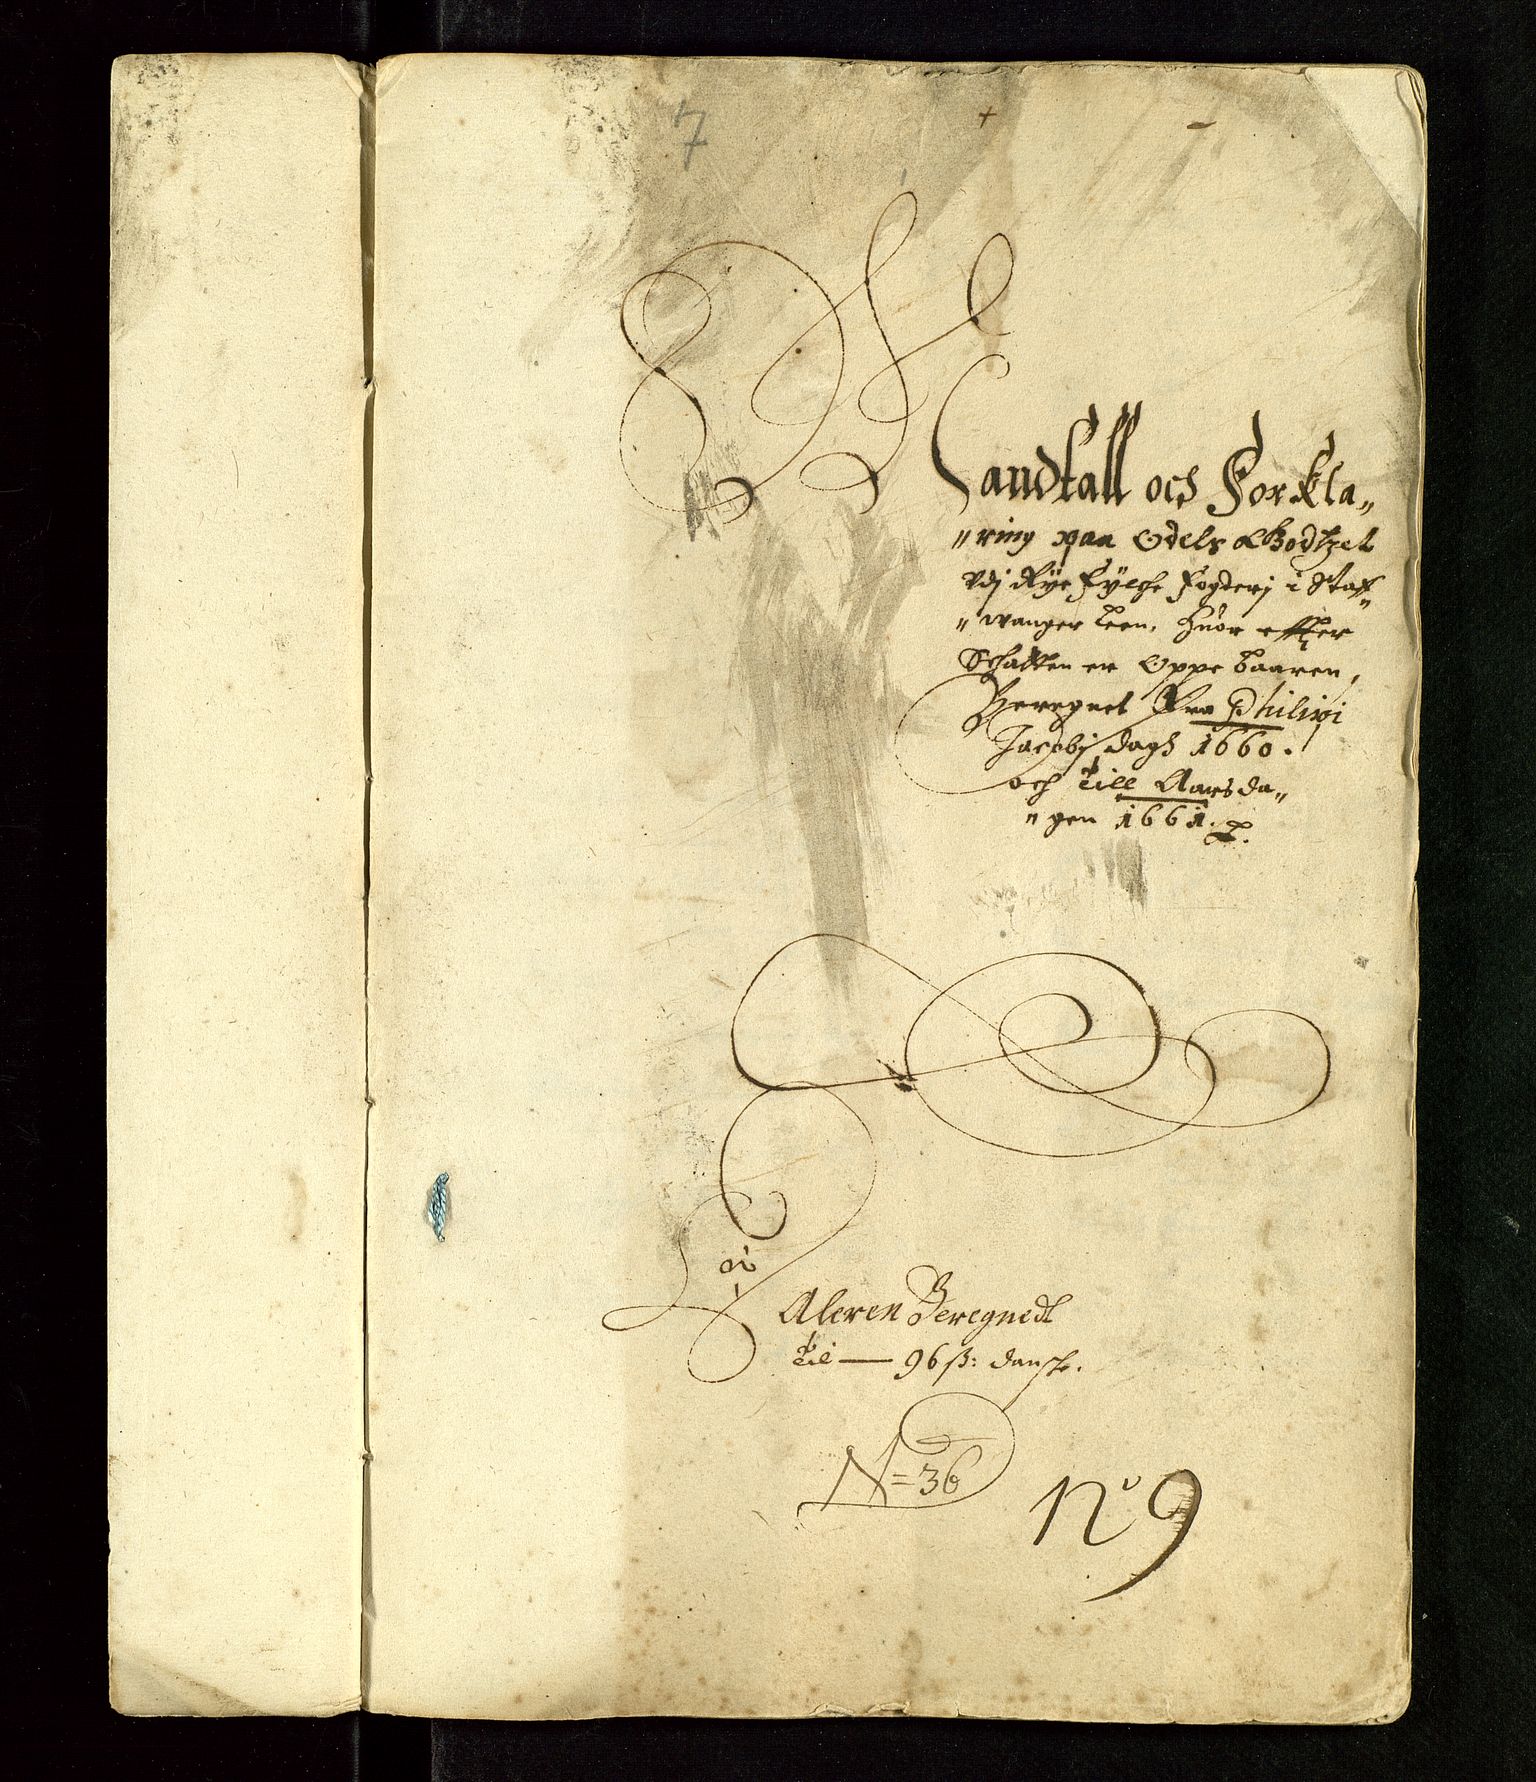 7
Landtall och Forkla„
„ring paa Odels Godtzet
vdj Rÿe Fÿlche Fogderj i Staff„
„wanger Leen, huor effter
Schatten er Oppebaaren,
Beregnet Fra Philipi
Jacobj dagh 1660.
och till Aarsda„
„gen 1661.
Aleren Beregnedt
til — 96 ß: danske.
N=36
No 9